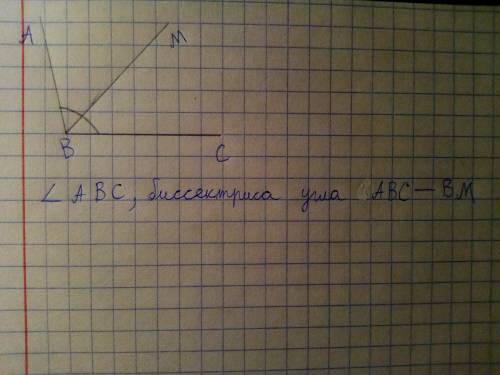 A
M
B
C
∠ABC, биссектриса угла ABC — BM